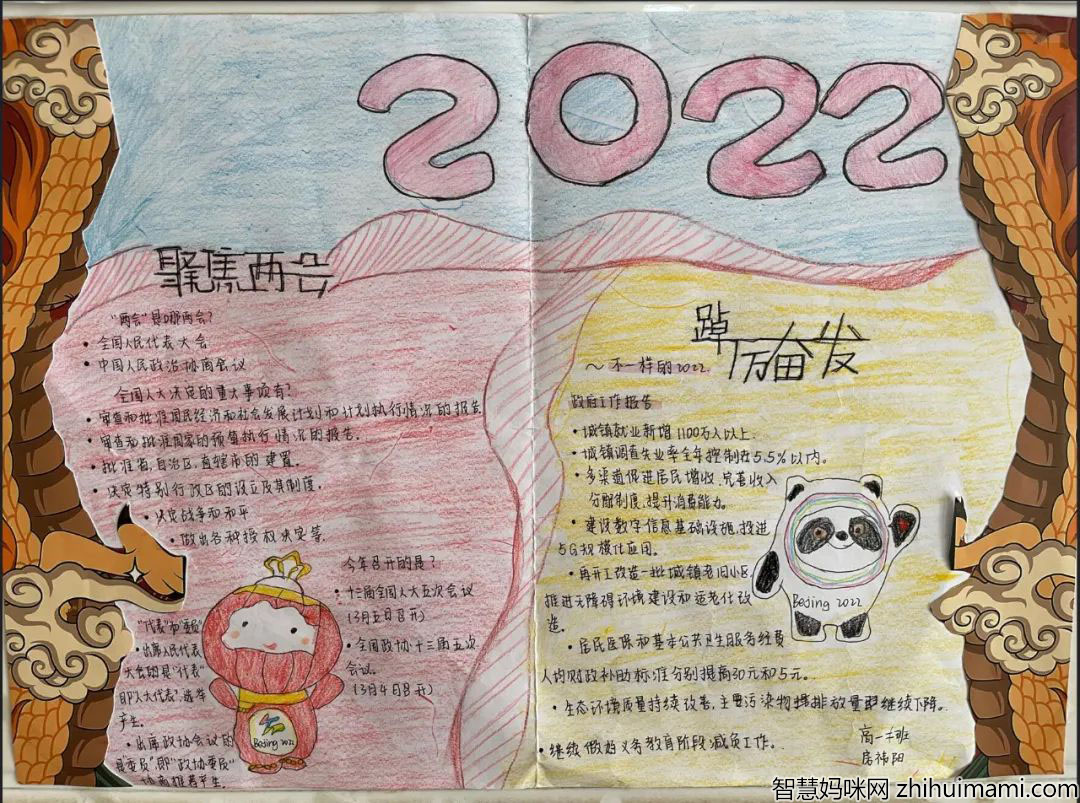 2022
聚焦两会
"两会"是哪两会?
• 全国人民代表大会
• 中国人民政治协商会议
全国人大决定的重大事项有?
• 审查和批准国民经济和社会发展计划和计划执行情况的报告
• 审查和批准国家的预算执行情况的报告.
• 批准省,自治区,直辖市的建置.
• 决定特别行政区的设立及其制度.
• 决定战争和和平
• 做出各种授权决定等.
今年召开的是?
• 十三届全国人大五次会议
(3月5日召开)
• 全国政协十三届五次
会议.
(3月4日召开)
"代表"和委员"
• 出席人民代表
大会的是"代表"
即"人大代表",选举
产生.
• 出席政协会议的
是委员",即"政协委员"
协商推荐产生.
Beijing 2022
踔厉奋发
~不一样的2022.
政府工作报告
• 城镇就业新增1100万人以上.
• 城镇调查失业率全年控制在5.5%以内.
• 多渠道促进居民增收,完善收入
分配制度,提升消费能力.
• 建设数字信息基础设施,推进
5G规模化应用.
• 再开工改造一批城镇老旧小区,
推进无障碍环境建设和适老化改
造.
• 居民医保和基本公共卫生服务经费
人均财政补助标准分别提高30元和5元.
• 生态环境质量持续改善,主要污染物排放量继续下降.
• 继续做好义务教育阶段减负工作.
Beijing 2022
高一班
智慧妈咪网 zhihuimami.com